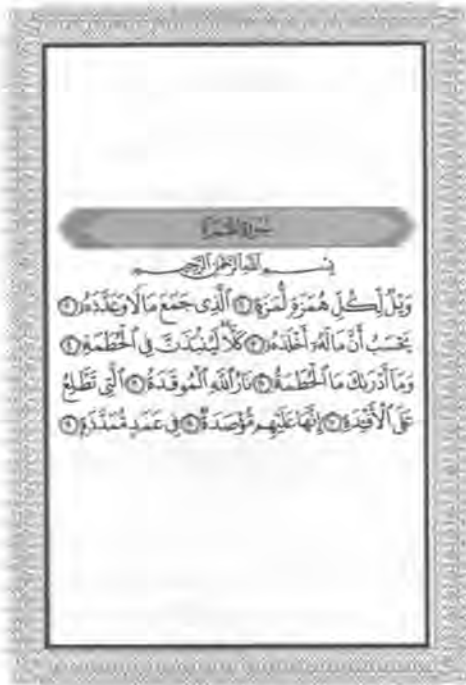 سورة الهمزة
بِسْمِ ٱللَّهِ ٱلرَّحْمَٰنِ ٱلرَّحِيمِ
وَيْلٌ لِّكُلِّ هُمَزَةٍ لُّمَزَةٍ ١ ٱلَّذِى جَمَعَ مَالًا وَعَدَّدَهُۥ ٢
يَحْسَبُ أَنَّ مَالَهُۥٓ أَخْلَدَهُۥ ٣ كَلَّا ۖ لَيُنۢبَذَنَّ فِى ٱلْحُطَمَةِ ٤
وَمَآ أَدْرَىٰكَ مَا ٱلْحُطَمَةُ ٥ نَارُ ٱللَّهِ ٱلْمُوقَدَةُ ٦ ٱلَّتِى تَطَّلِعُ
عَلَى ٱلْأَفْـِٔدَةِ ٧ إِنَّهَا عَلَيْهِم مُّؤْصَدَةٌ ٨ فِى عَمَدٍ مُّمَدَّدَةٍۭ ٩